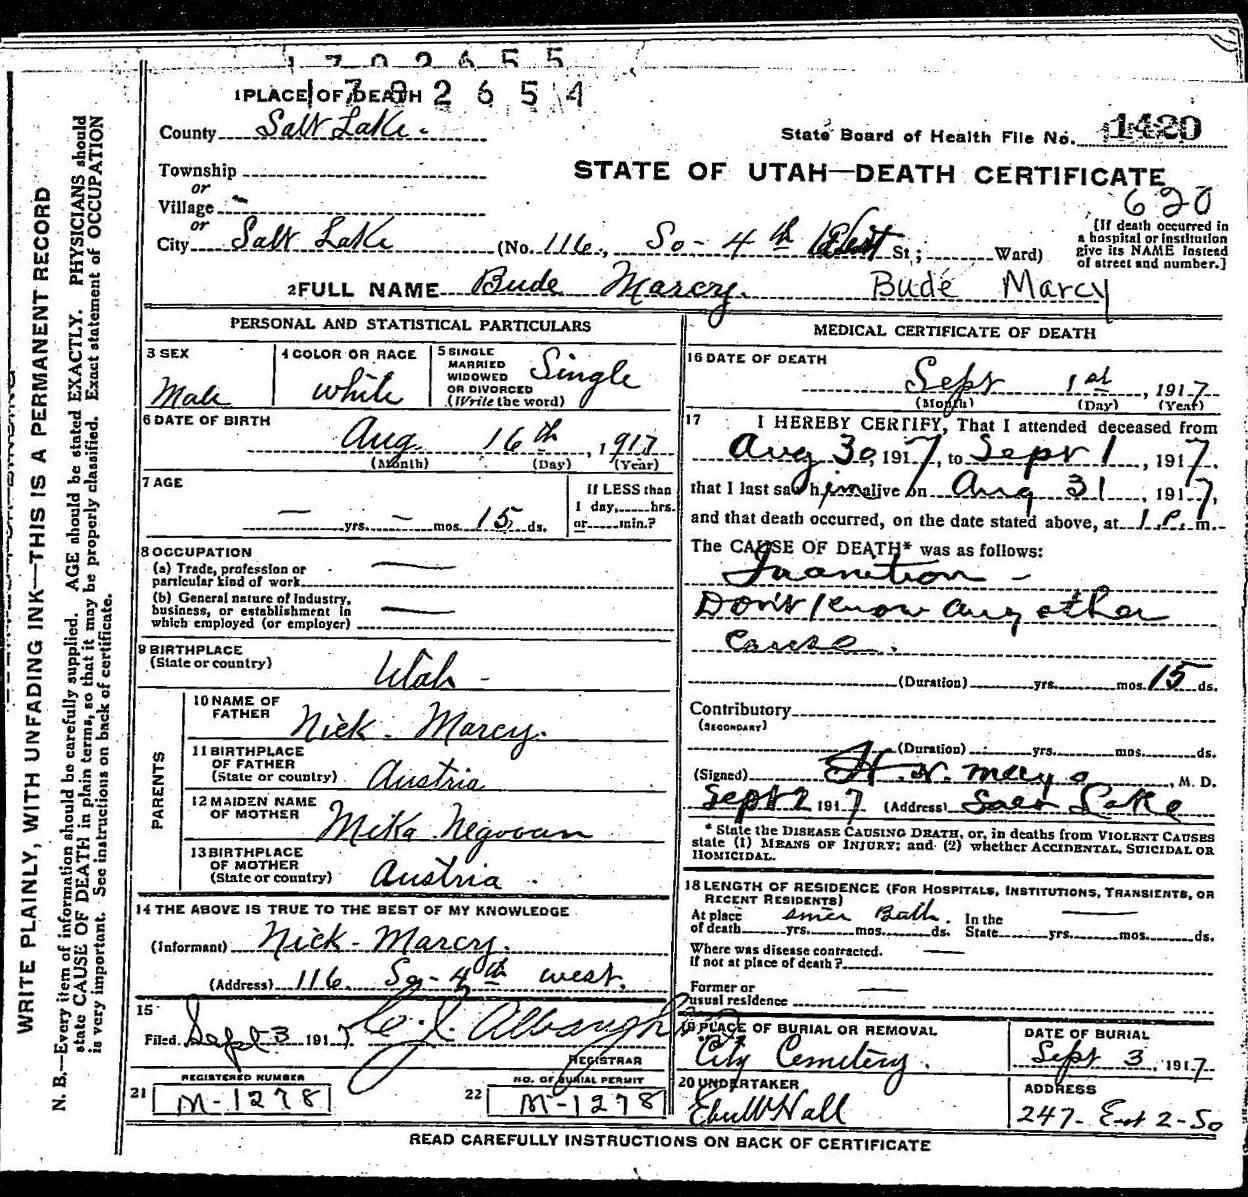 1702655
1 PLACE OF DEATH 1702654
County Salt Lake.
State Board of Health File No. 1420
Township
STATE OF UTAH—DEATH CERTIFICATE
or
Village
620
or
City Salt Lake (No. 116, So - 4th West St; Ward)
[If death occurred in
a hospital or institution
give its NAME instead
of street and number.]
2 FULL NAME Bude Marcy. Budé Marcy
PERSONAL AND STATISTICAL PARTICULARS
3 SEX
Male
4 COLOR OR RACE
White
5 SINGLE
MARRIED
WIDOWED
OR DIVORCED
(Write the word)
Single
6 DATE OF BIRTH
Aug 16th, 1917
(Month) (Day) (Year)
7 AGE
— yrs. — mos. 15 ds.
If LESS than
1 day, hrs.
or min.?
8 OCCUPATION
(a) Trade, profession or
particular kind of work —
(b) General nature of industry,
business, or establishment in
which employed (or employer) —
9 BIRTHPLACE
(State or country)
Utah -
PARENTS
10 NAME OF
FATHER
Nick - Marcy.
11 BIRTHPLACE
OF FATHER
(State or country)
Austria
12 MAIDEN NAME
OF MOTHER
Meka Negovan
13 BIRTHPLACE
OF MOTHER
(State or country)
Austria.
14 THE ABOVE IS TRUE TO THE BEST OF MY KNOWLEDGE
(Informant) Nick - Marcy.
(Address) 116. So - 4th west.
15
Filed Sept 3 1917
REGISTRAR
REGISTERED NUMBER
21 M-1278
NO. OF BURIAL PERMIT
22 M-1278
MEDICAL CERTIFICATE OF DEATH
16 DATE OF DEATH
Sept 1st, 1917
(Month) (Day) (Year)
17 I HEREBY CERTIFY, That I attended deceased from
Aug 30, 1917, to Sept 1, 1917,
that I last saw him alive on Aug 31, 1917,
and that death occurred, on the date stated above, at 1 P. m.
The CAUSE OF DEATH* was as follows:
Inanition -
Don't Know any other
cause.
(Duration) yrs. mos. 15 ds.
Contributory
(SECONDARY)
(Duration) yrs. mos. ds.
(Signed) H. N. Mayo, M. D.
Sept 2 1917 (Address) Salt Lake
* State the DISEASE CAUSING DEATH, or, in deaths from VIOLENT CAUSES
state (1) MEANS OF INJURY; and (2) whether ACCIDENTAL, SUICIDAL OR
HOMICIDAL.
18 LENGTH OF RESIDENCE (FOR HOSPITALS, INSTITUTIONS, TRANSIENTS, OR
RECENT RESIDENTS)
At place since Bath. In the —
of death yrs. mos. ds. State yrs. mos. ds.
Where was disease contracted. —
if not at place of death?
Former or —
usual residence
19 PLACE OF BURIAL OR REMOVAL
City Cemetery.
DATE OF BURIAL
Sept 3, 1917
20 UNDERTAKER
Eber W Hall
ADDRESS
247 - East 2 - So
READ CAREFULLY INSTRUCTIONS ON BACK OF CERTIFICATE
WRITE PLAINLY, WITH UNFADING INK—THIS IS A PERMANENT RECORD
N. B.—Every item of information should be carefully supplied. AGE should be stated EXACTLY. PHYSICIANS should
state CAUSE OF DEATH in plain terms, so that it may be properly classified. Exact statement of OCCUPATION
is very important. See instructions on back of certificate.